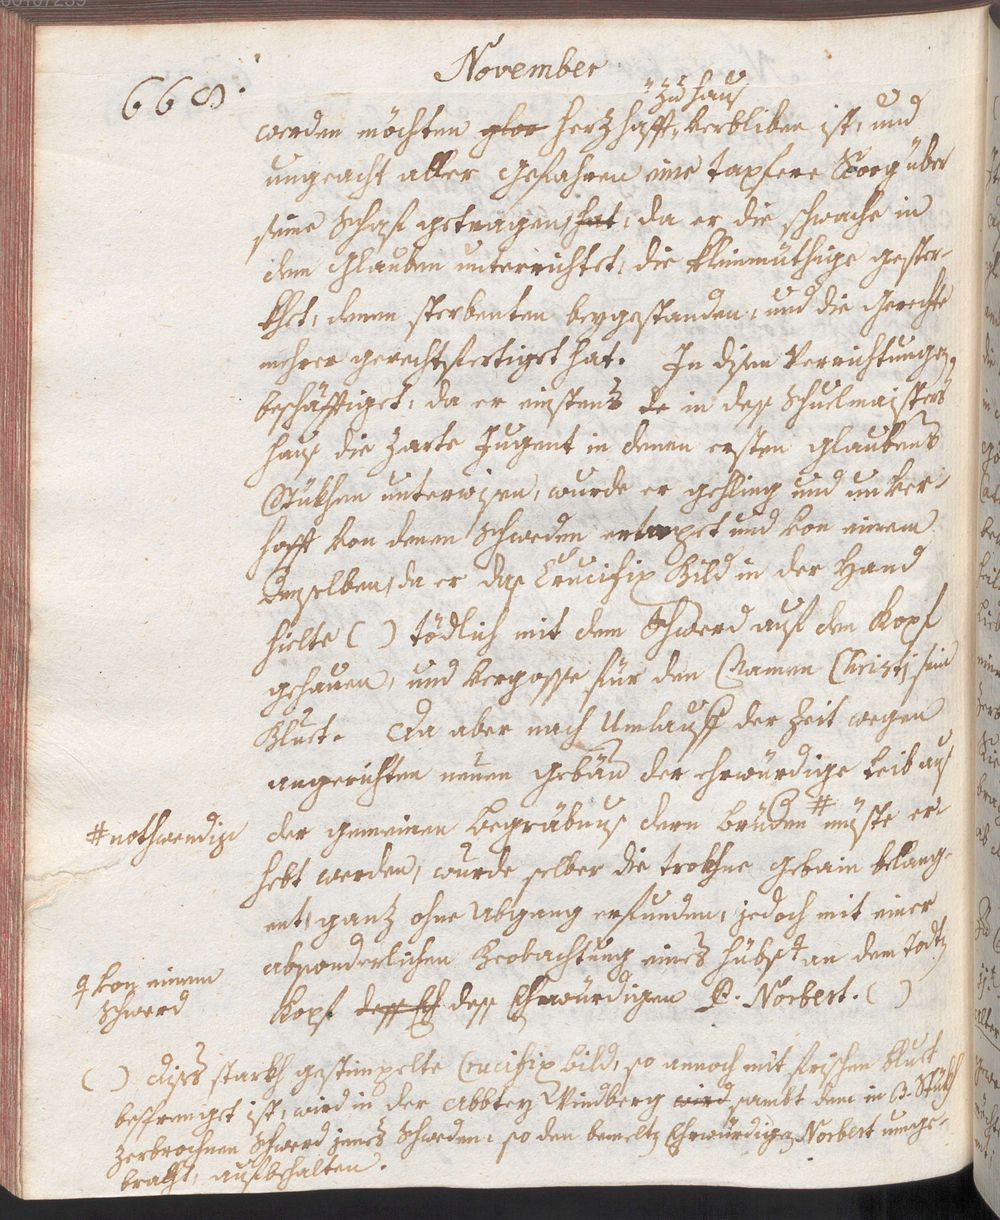 November
668.
zu haus
werden möchten herzhafft verbliben ist, und
ungeacht aller gefahren eine tapfere Sorg über
seine Schaf getragen hat, da er die schwache in
dem Glauben unterrichtet, die kleinmüthige gester-
khet, denen sterbenten beygestanden, und die Gerechte
mehrer gerechtfertiget hat. In disen Verrichtungen
beschäfftiget, da er einstens in dess Schuelmaisters
haus die zarte Jugent in denen ersten glaubens
Stükhen unterwisen, wurde er gehling und unver-
hofft von denen Schweden und von einem
derselben, da er das Crucifix Bild in der Hand
hielte ( ) tödlich mit dem Schwerd auf den Kopf
gehauen, und vergosse für den Namen Christi sein
Bluet. Da aber nach Umlauff der Zeit wegen
angerichten neuen gebäu der ehrwürdige Leib aus
# nothwendig
der gemeinen Begräbnus dern brüdern # müste er-
hebt werden, wurde selber die trokhne gebain belang-
ent, ganz ohne Abgang erfunden, jedoch mit einer
absonderlichen Beobachtung eines hiibs an dem Todten
von einem
Schwerd
Kopf dess Eh dess Ehrwürdigen P. Norbert. ( )
( ) dises starkh gestimpelte Crucifix bild, so annoch mit frischen bluet
besprenget ist, wird in der Abbtey Windberg wird sambt dem in 3. Stükh
zerbrochnen Schwerd jenes Schweden, so den bemelten Ehrwürdigen Norbert umge-
bracht, aufbehalten.